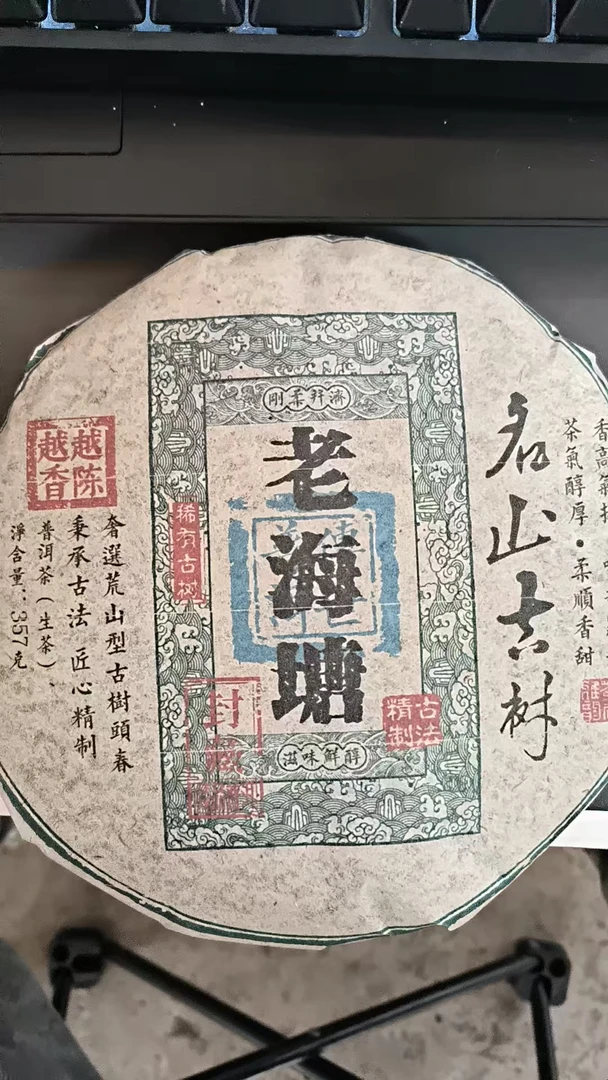 剛柔幷濟
老海塘
滋味鮮醇
稀有古树
古法
精制
封
名山古树
茶氣醇厚·柔順香甜
越陈
越香
奢選荒山型古樹頭春
秉承古法 匠心精制
普洱茶(生茶)
淨含量:357克